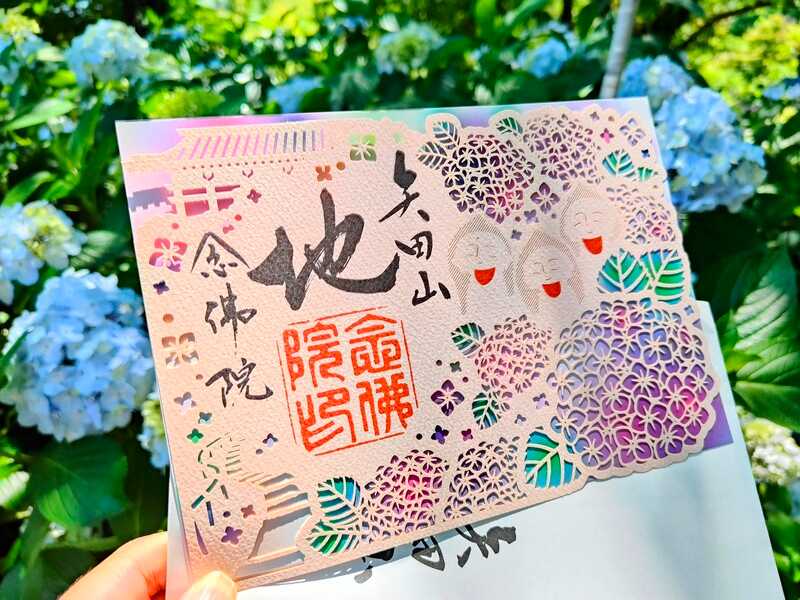 矢田山
地
念佛院
念佛
院印